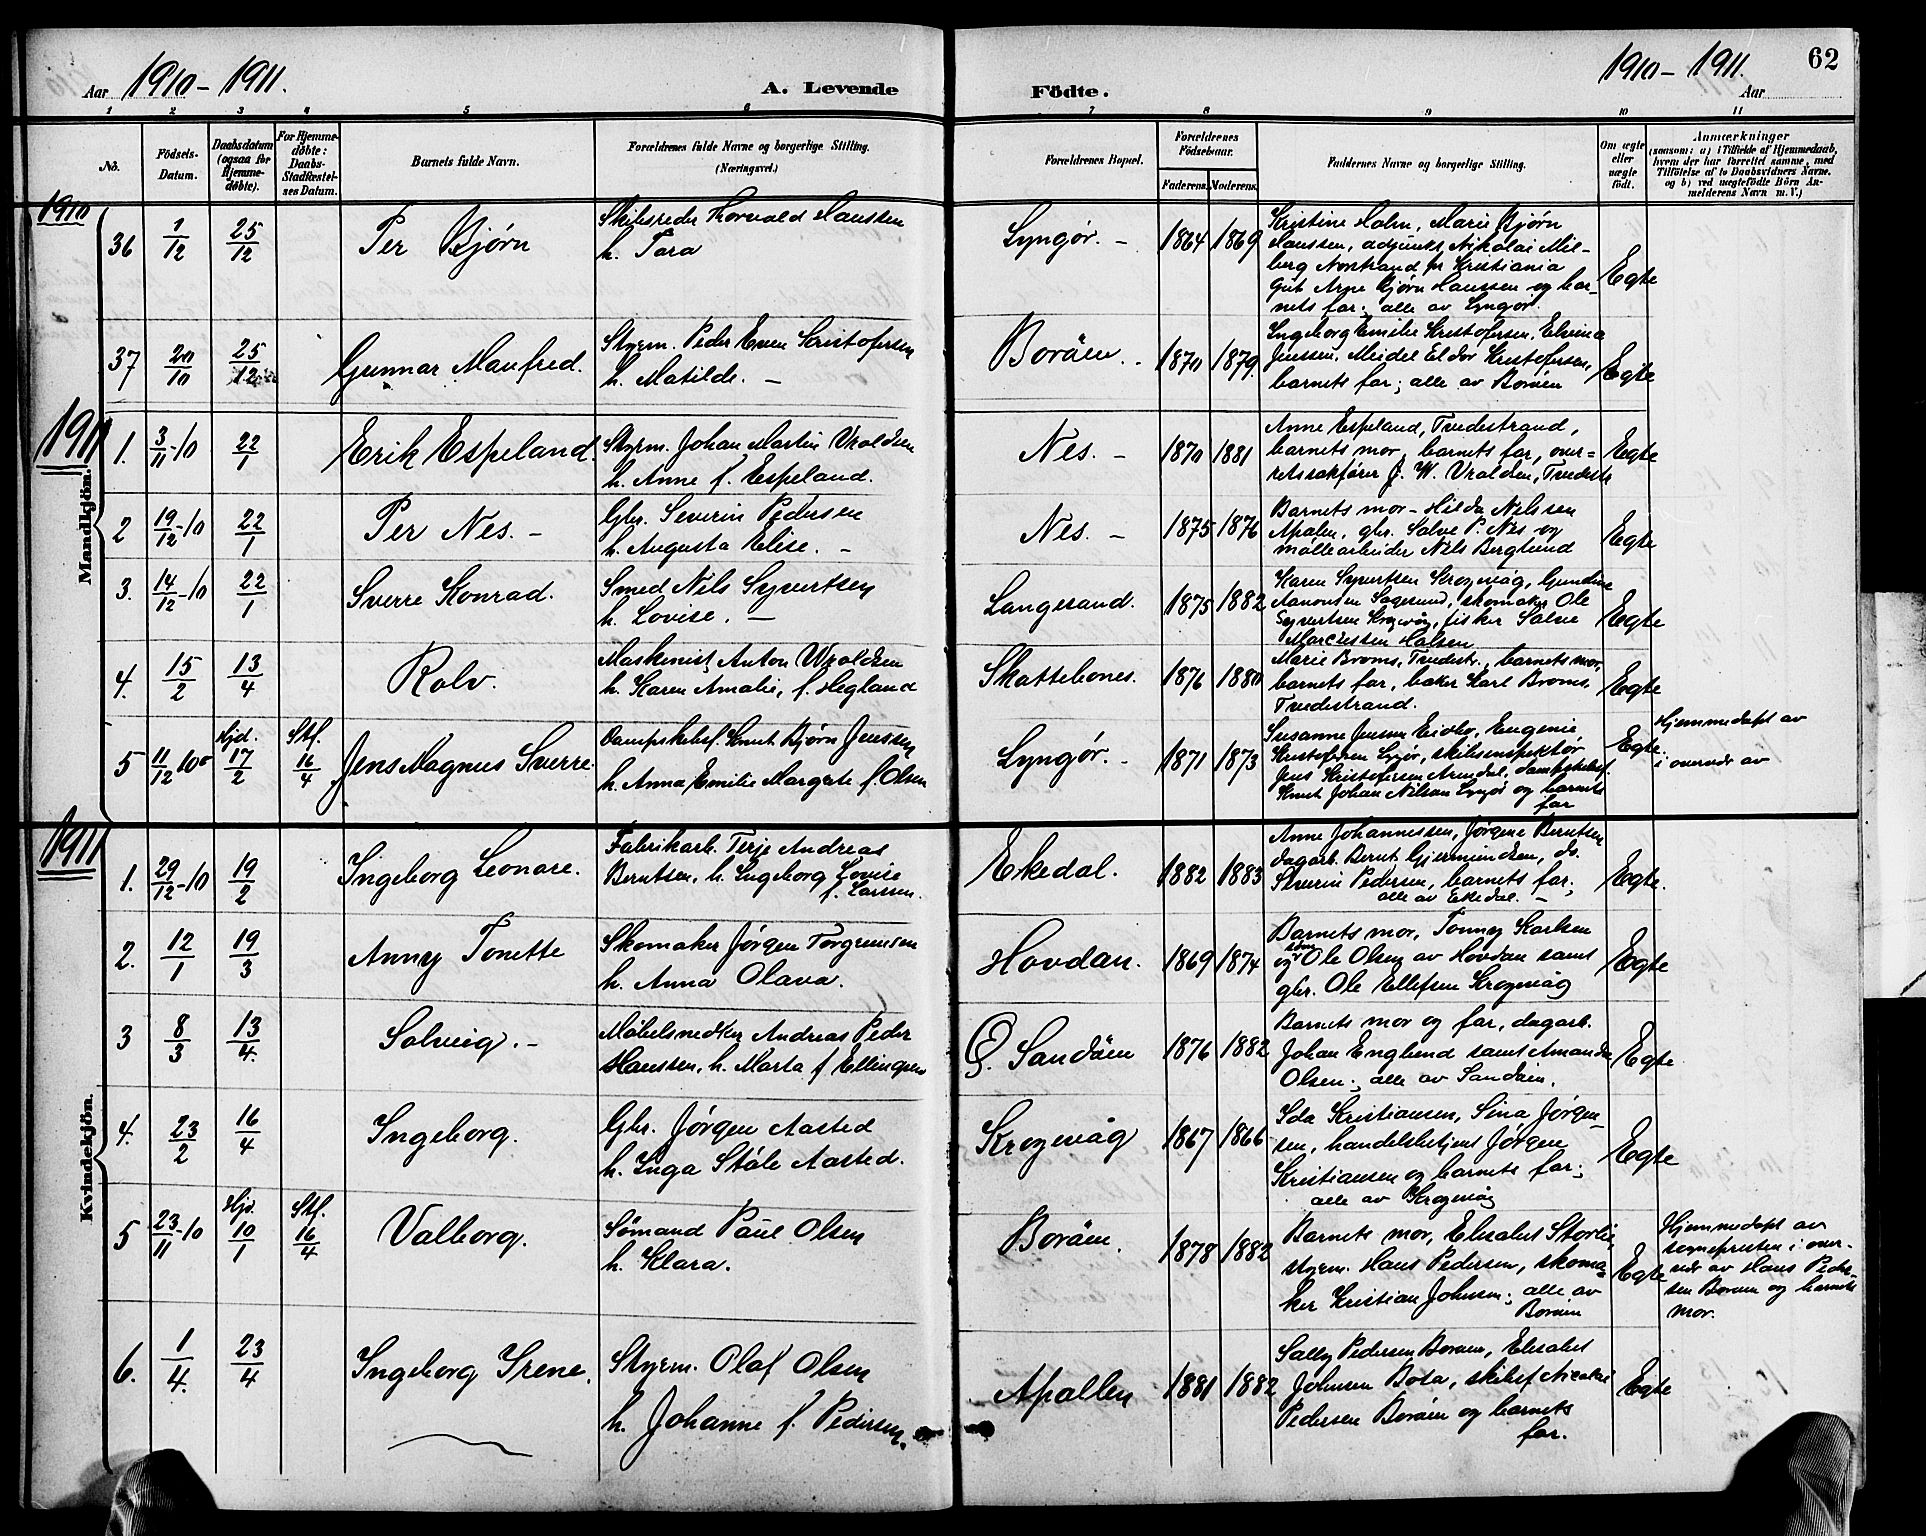 Aar 1910-1911.
A. Levende
Födte.
1910-1911.
Aar
62
1 2 3 4 5 6 7 8 9 10 11
No.
Födsels-
Datum.
Daabsdatum
(ogsaa for
Hjemme-
döbte).
For Hjemme-
döbte:
Daabs-
Stadfæstel-
ses Datum.
Barnets fulde Navn.
Forældrenes fulde Navne og borgerlige Stilling.
(Næringsvei.)
Forældrenes Bopæl.
Forældrenes
Födselsaar.
Faderens.
Moderens.
Faddernes Navne og borgerlige Stilling.
Om ægte
eller
uægte
födt.
Anmærkninger
(saasom: a) i Tilfælde af Hjemmedaab,
hvem der har forrettet samme, med
Tilföielse af to Daabsvidners Navne,
og b) ved uægtefödte Börn An-
melderens Navn m. V.)
1910
36 1/12 25/12 Per Bjørn
Skibsreder Thorvald Hanssen
h. Tara
Lyngør. - 1864 1869
Kristine Holm, Marie Bjørn
Hanssen, adjunkt Nikolai Mil-
berg Norstrand pr Kristiania
Gut Arne Bjørn Hanssen og bar-
nets far; alle av Lyngør.
Egte
37 20/10 25/12 Gunnar Manfred.
Styrm. Peder Even Kristofersen
h. Matilde. -
Borøen. - 1870 1879.
Ingeborg Emilie Kristofersen, Elvina
Jenssen, Meidel Eldor Kristofersen,
barnets far; alle av Borøen
Egte
1911
Mandkjön.
1. 3/11-10 22/1 Erik Espeland.
Styrm. Johan Martin Vraldsen
h. Anne f. Espeland.
Nes. - 1870 1881
Anne Espeland, Tvedestrand,
barnets mor, barnets far, over-
retssakfører J. W. Vraldsen, Tvedestr
Egte
2 19/12-10 22/1 Per Nes. -
Gbr. Severin Pedersen
h. Augusta Elise. -
Nes. - 1875 1876
Barnets mor - Hilda Nilsen
Apalen, gbr. Salve P. Nes og
møllearbeider Nils Berglund
Egte
3. 14/12-10 22/1 Sverre Konrad.
Smed Nils Syvertsen
h. Lovise. -
Langesand. 1875 1882
Karen Syvertsen Krogvåg, Gundine
Aanonsen Sagesund, skomaker Ole
Syvertsen Krogvåg, fisker Salve
Marcussen Holsen
Egte
4. 15/2 13/4 Rolv.
Maskinist Anton Vraldsen
h. Karen Amalie, f. Hegland
Skattebones. 1876 1880
Marie Broms, Tvedestr., barnets mor,
barnets far, baker Karl Broms,
Tvedestrand.
Egte
5 11/12 10 Hjd. 17/2 Stf. 16/4 Jens Magnus Sverre.
Dampskibsf. Knut Bjørn Jenssen
h. Anna Emilie Margrete f. Olsen
Lyngør. - 1871 1873
Susanne Jensen Eidbo, Eugenie
Kristofersen Lyngør, skibsinspektør
Jens Kristofersen Arendal, dampskibsf.
Knut Johan Nilsen Lyngør og barnets
far
Egte.
Hjemmedøpt av
i overvær av
1911
Kvindekjön.
1. 29/12-10 19/2 Ingeborg Leonore.
Fabrikarb. Terje Andreas
Berntsen, h. Ingeborg Lovise
f. Larsen.
Ekedal. 1882 1883
Anne Johannessen, Jørgine Berntsen
dagarb. Bernt Gjermundsen, do.
Severin Pedersen, barnets far;
alle av Ekedal. -
Egte.
2. 12/1 19/3 Anny Tonette
Skomaker Jørgen Torgrimsen
h. Anna Olava.
Hovdan. 1869 1874
Barnets mor, Tonny Karlsen
og Ole Olsen av Hovdan samt
gbr. Ole Ellefsen Krogvåg
Egte
3 8/3 13/4. Solveig. -
Møbelsnedker Andreas Peder
Hanssen, h. Marta f Ellingsen
Ø. Sandøen 1876 1882
Barnets mor og far, dagarb.
Johan Englund samt Amanda
Olsen; alle av Sandøen.
Egte
4. 23/2 16/4 Ingeborg.
Gbr. Jørgen Aasted
h. Inga Ståle Aasted.
Krogvåg 1867 1866
Ida Kristiansen, Sina Jørgen-
sen, handelsbetjent Jørgen
Kristiansen og barnets far;
alle av Krogvåg
Egte
5 23/11-10 Hjd. 10/1 Stf. 16/4 Valborg.
Sömand Paul Olsen
h. Klara.
Borøen. 1878 1882
Barnets mor, Elisabet Storlie,
styrm. Hans Pedersen, skoma-
ker Kristian Johnsen; alle av
Borøen
Egte
Hjemmedøpt av
sognepresten i over-
vær av Hans Peder-
sen Borøen og barnets
mor.
6. 1/4. 23/4 Ingeborg Irene.
Styrm. Olaf Olsen
h. Johanne f. Pedersen.
Apallen 1881 1882
Sally Pedersen Borøen, Elisabet
Johnsen Bota, skibsf Nicolai
Pedersen Borøen og barnets
far.
Egte